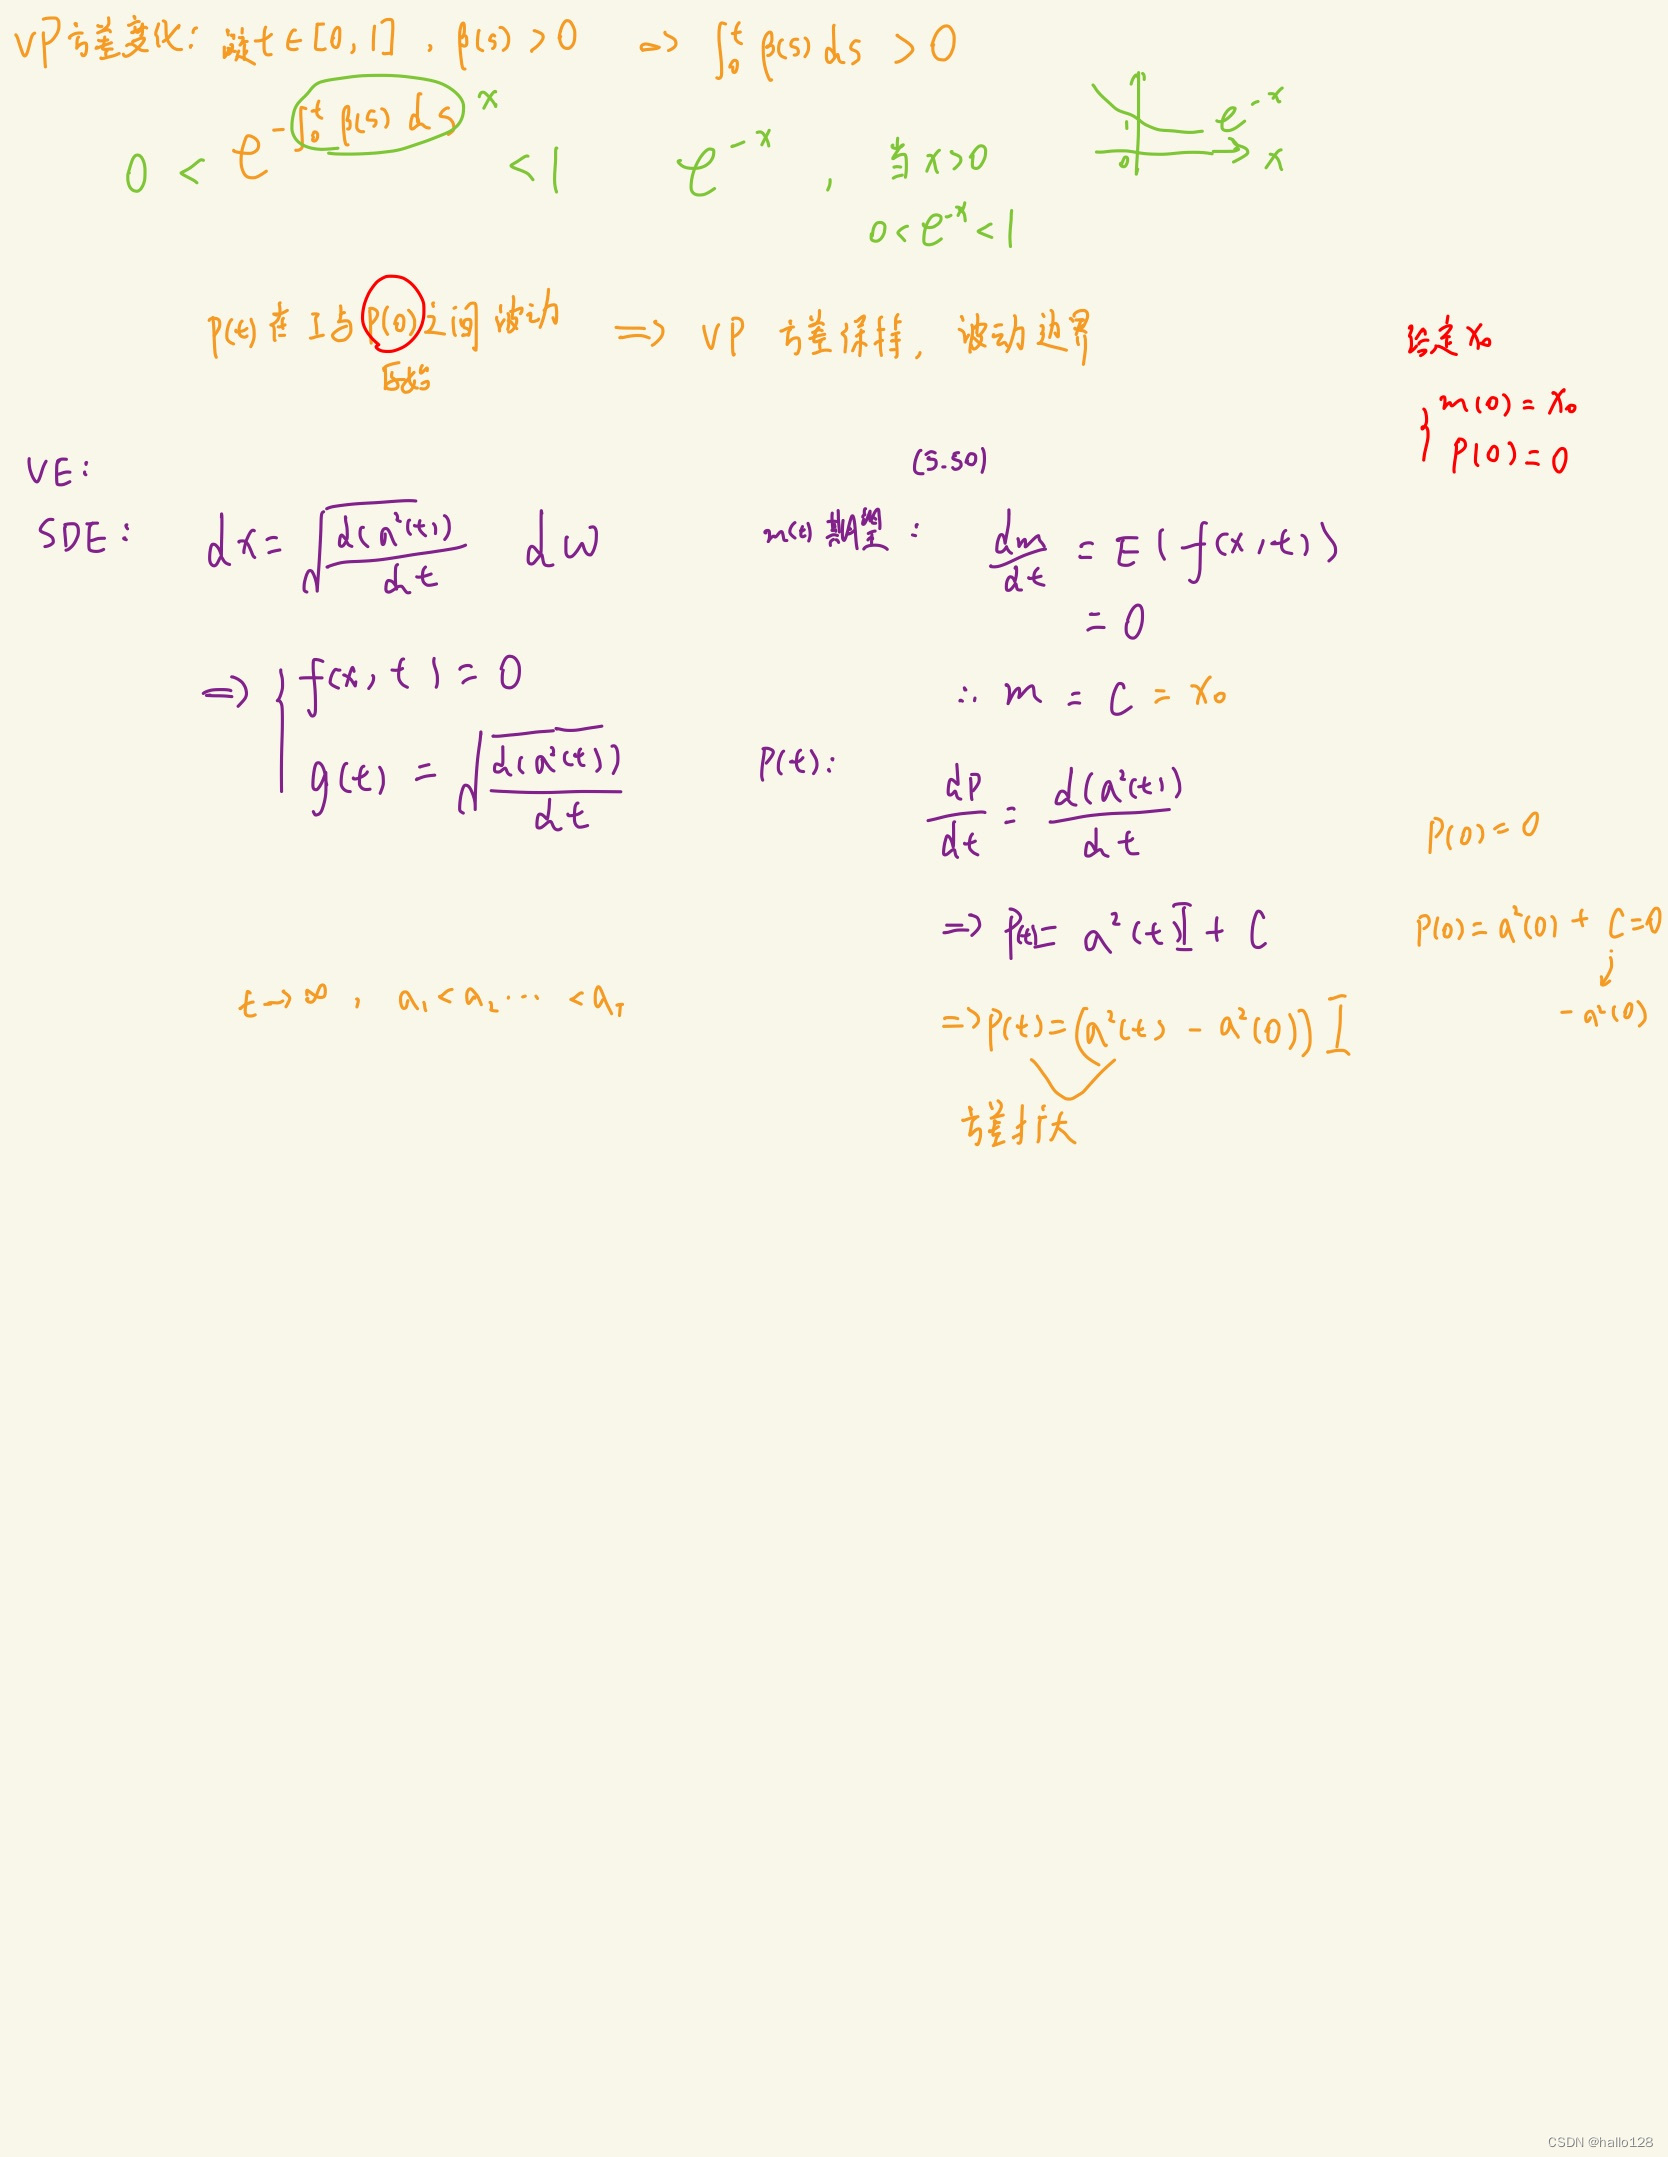 VP方差变化: 通常t∈[0,1], β(s)>0 => ∫₀ᵗ β(s)ds >0
0 < e^{-∫₀ᵗ β(s)ds} <1 x e^{-x}, 当x>0
0<e^{-x}<1
1 e^{-x}
0 x
P(t)在I与P(0)之间波动 => VP 方差保持, 波动边界
原始
给定x₀
{ m(0)=x₀
P(0)=0
VE:
(5.50)
SDE: dx=√(d(a²(t))/dt) dw
m(t)期望: dm/dt = E(f(x,t))
= 0
=> { f(x,t)=0
g(t) = √(d(a²(t))/dt)
∴ m = C = x₀
P(t):
dP/dt = d(a²(t))/dt
P(0)=0
=> P(t)= a²(t)I + C
P(0)=a²(0)+ C=0
-a²(0)
t→∞, a₁<a₂…<a_T
=>P(t)=(a²(t) - a²(0)) I
方差扩大
CSDN @hallo128